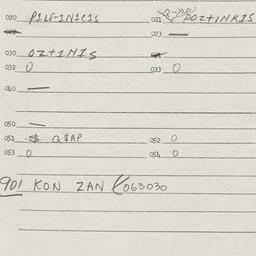 020 P1LF-1N1C1S 021 POZTINKIS
023 —
030 OZT1N1S
032 0 033 0
040 —
050 —
051 $ Q$AP 052 0
053 0 054 0
901 KON ZAN K063030